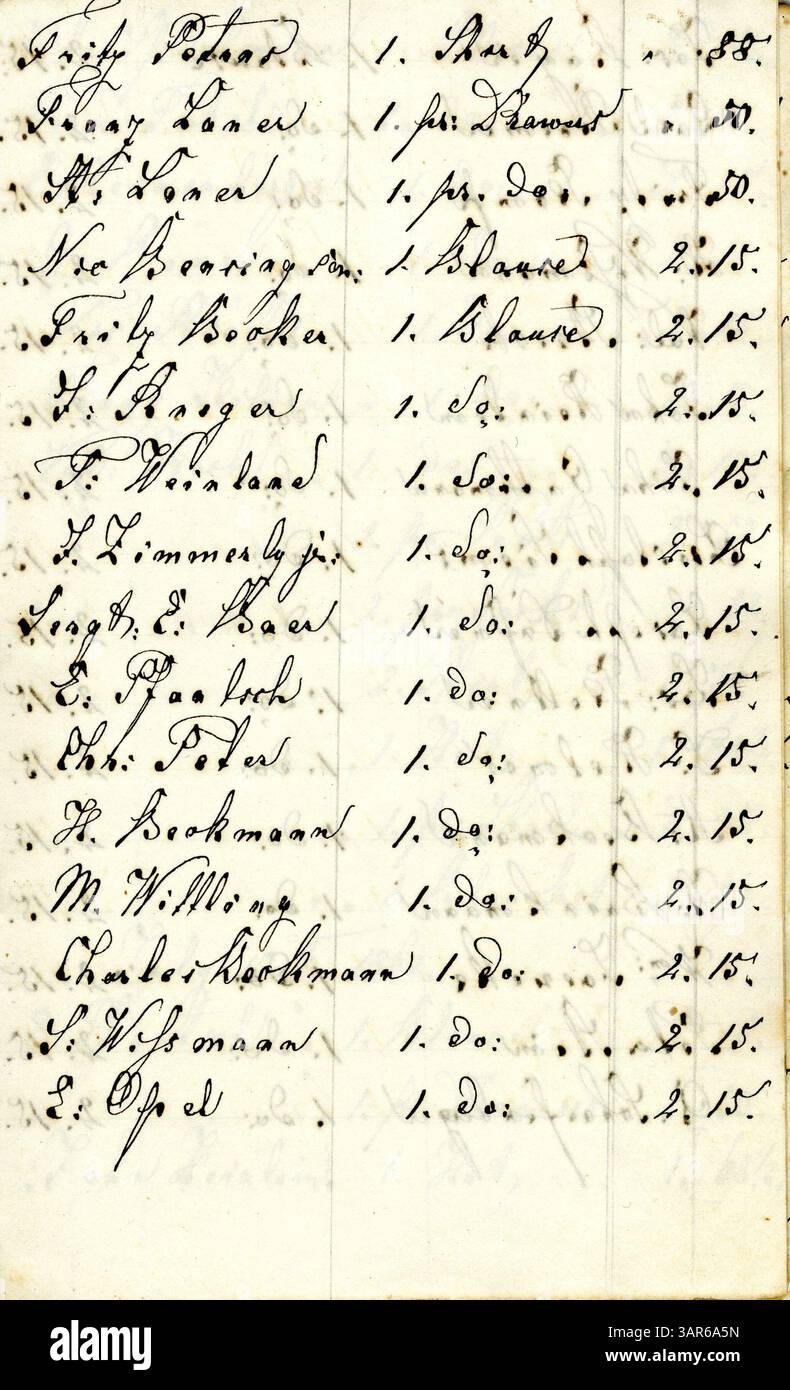 Fritz Petras. 1. Shirt . . " 88.
Franz Laner 1. pr: Drawers . 50.
St: Laner 1. pr. do. . . . . 50.
Nic Bensing sen: 1. Blouse 2. 15.
Fritz Becker 1. Blouse. . 2. 15.
F: Krieger 1. do: 2. 15.
P: Weinland 1. do: . 2. 15.
J. Zimmerly jr: 1. do: . . . 2. 15.
Sergt: E: Baer 1. do: . . . 2. 15.
E: Pfantsch 1. do: 2. 15.
Chr: Peter 1. do: 2. 15.
H. Beckmann 1. do: . . . 2. 15.
M. Wittling 1. do: . 2. 15.
Charles Beckmann 1. do: . . . 2. 15.
S: Wissmann 1. do: . . . 2. 15.
E: Opel . 1. do: . 2. 15.
alamy
Image ID: 3AR6A5N
www.alamy.com